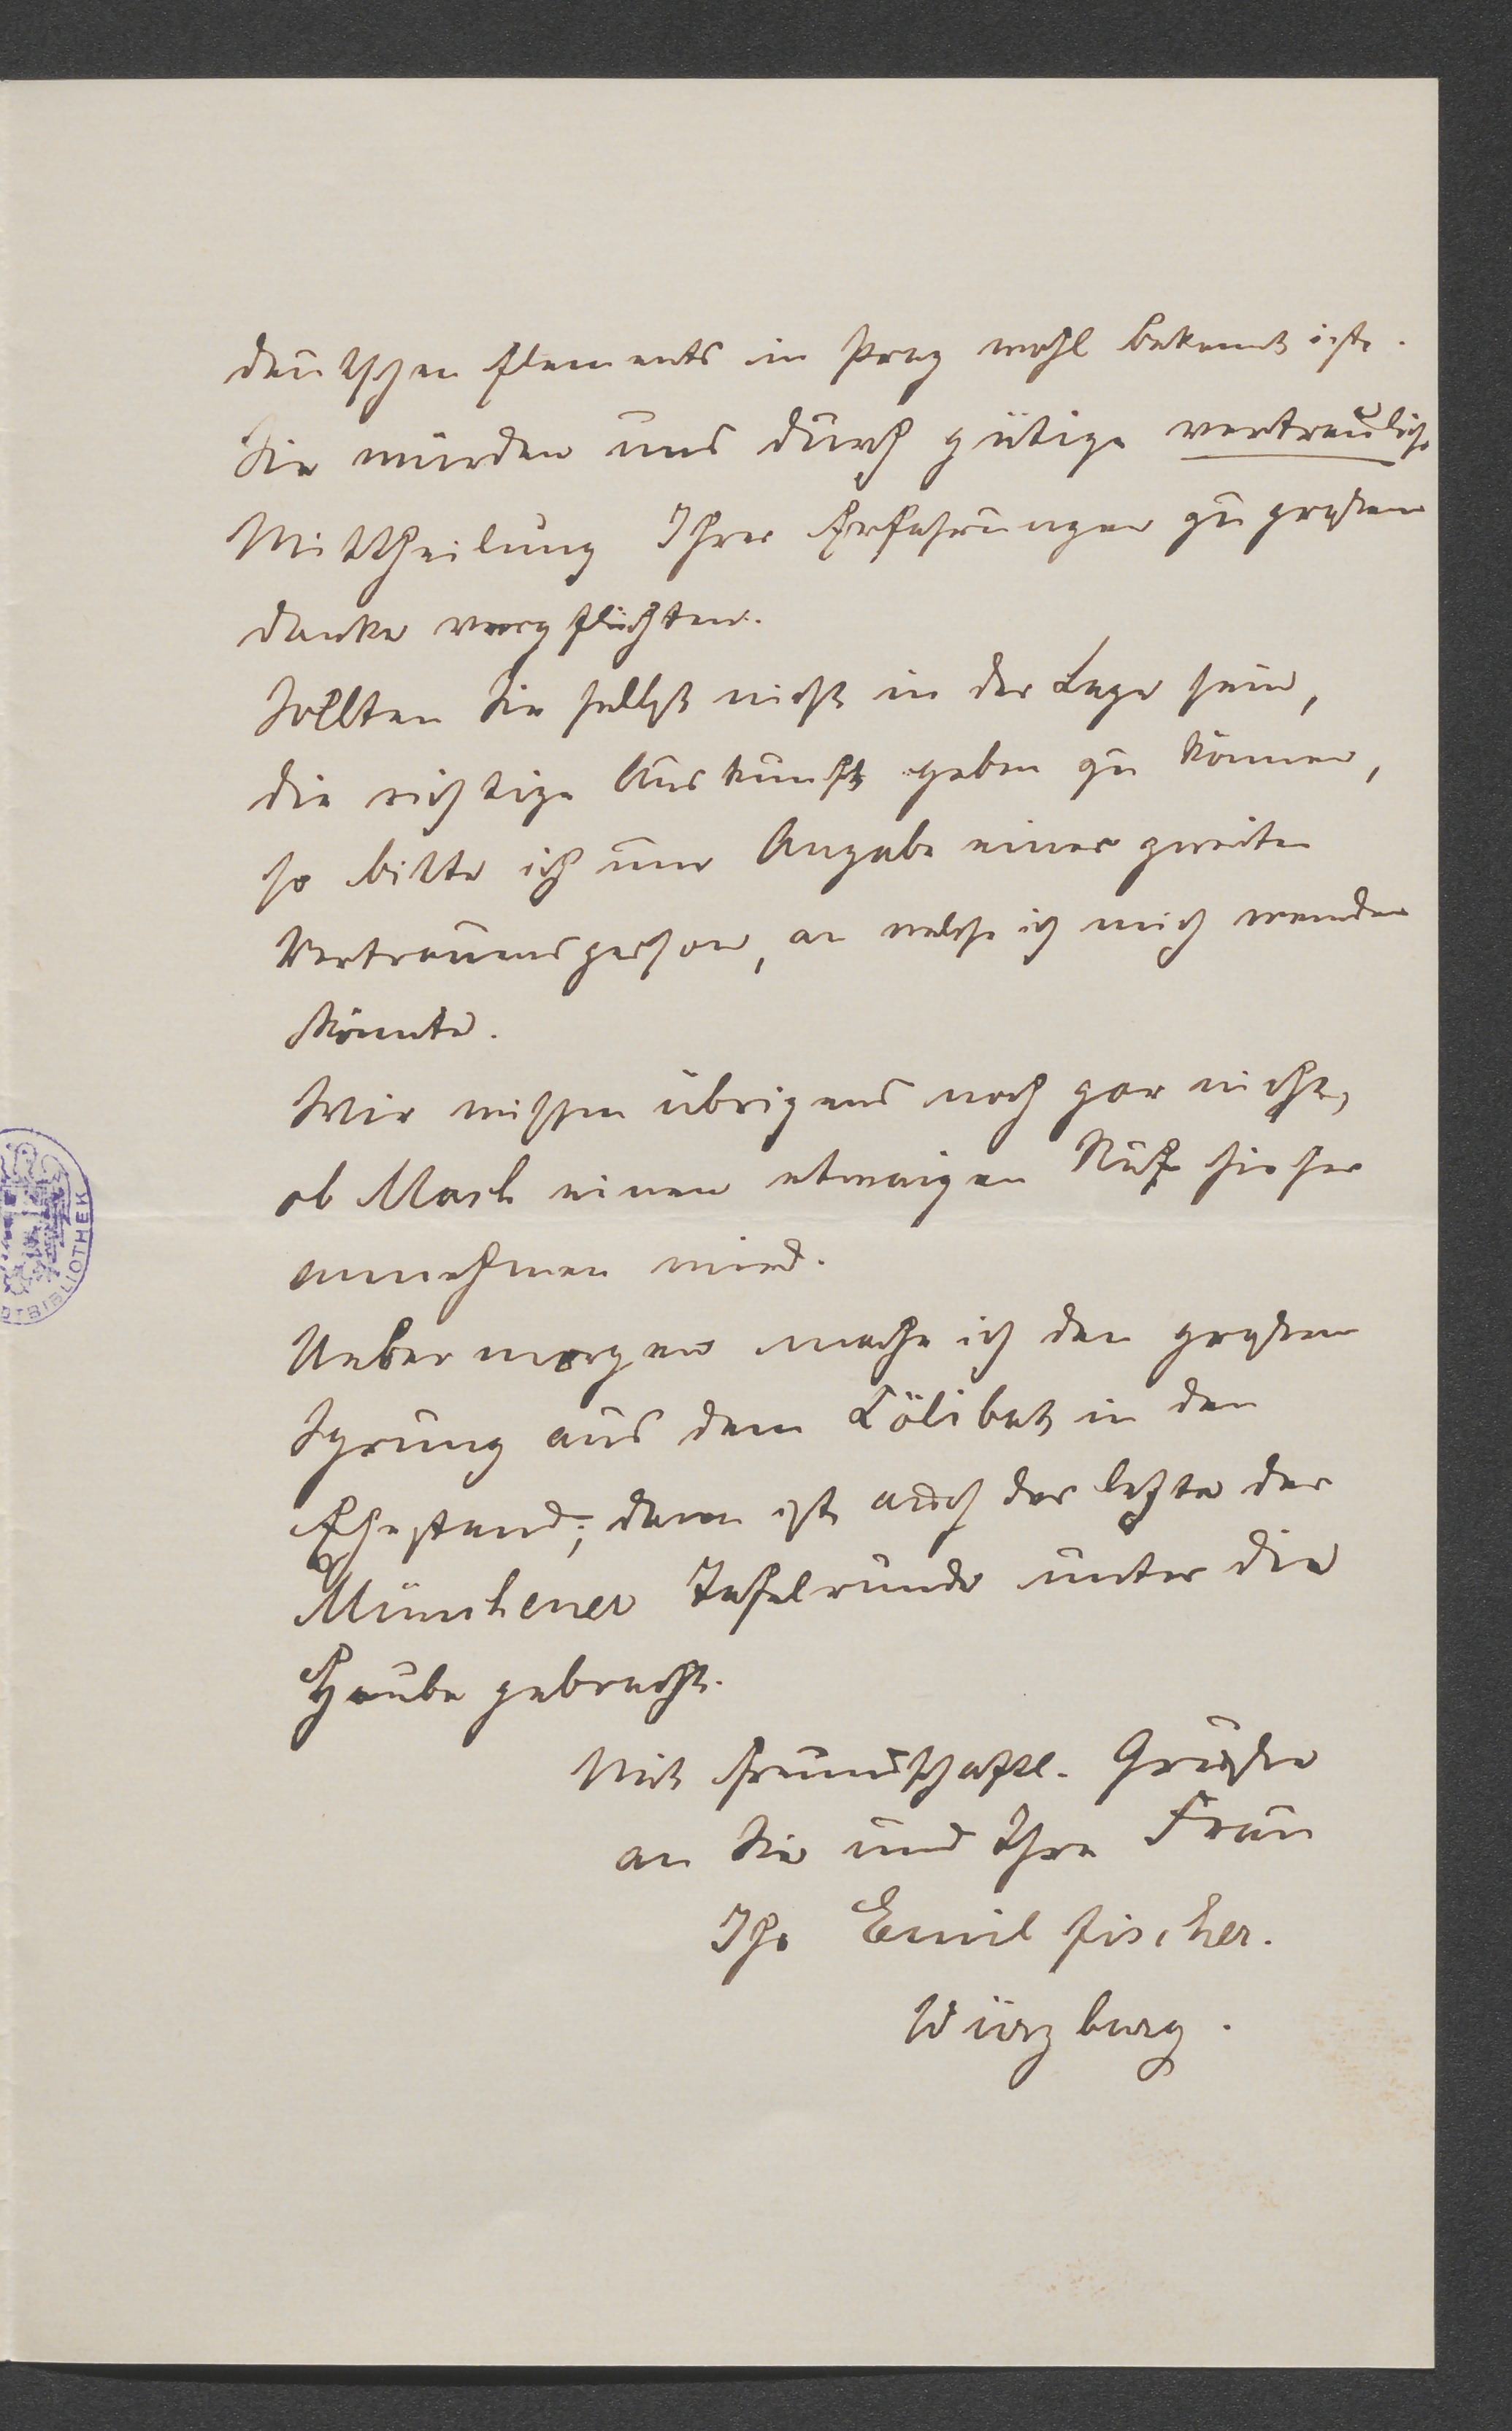 deutschen Elements in Prag wohl bekannt ist.
Sie würden uns durch gütige vertrauliche
Mittheilung Ihrer Erfahrungen zu großem
Danke verpflichten.
Sollten Sie selbst nicht in der Lage sein,
die richtige Auskunft geben zu können,
so bitte ich um Angabe einer zweiten
Vertrauensperson, an welche ich mich wenden
könnte.
Wir wissen übrigens noch gar nicht,
ob Mach einen etwaigen Ruf hieher
annehmen wird.
Uebermorgen mache ich den großen
Sprung aus dem Cölibat in den
Ehestand; dann ist auch der letzte der
Münchener Tafelrunde unter die
Haube gebracht.
Mit freundschaftl. Grüßen
an Sie und Ihre Frau
Ihr Emil Fischer.
Würzburg.
BIBLIOTHEK